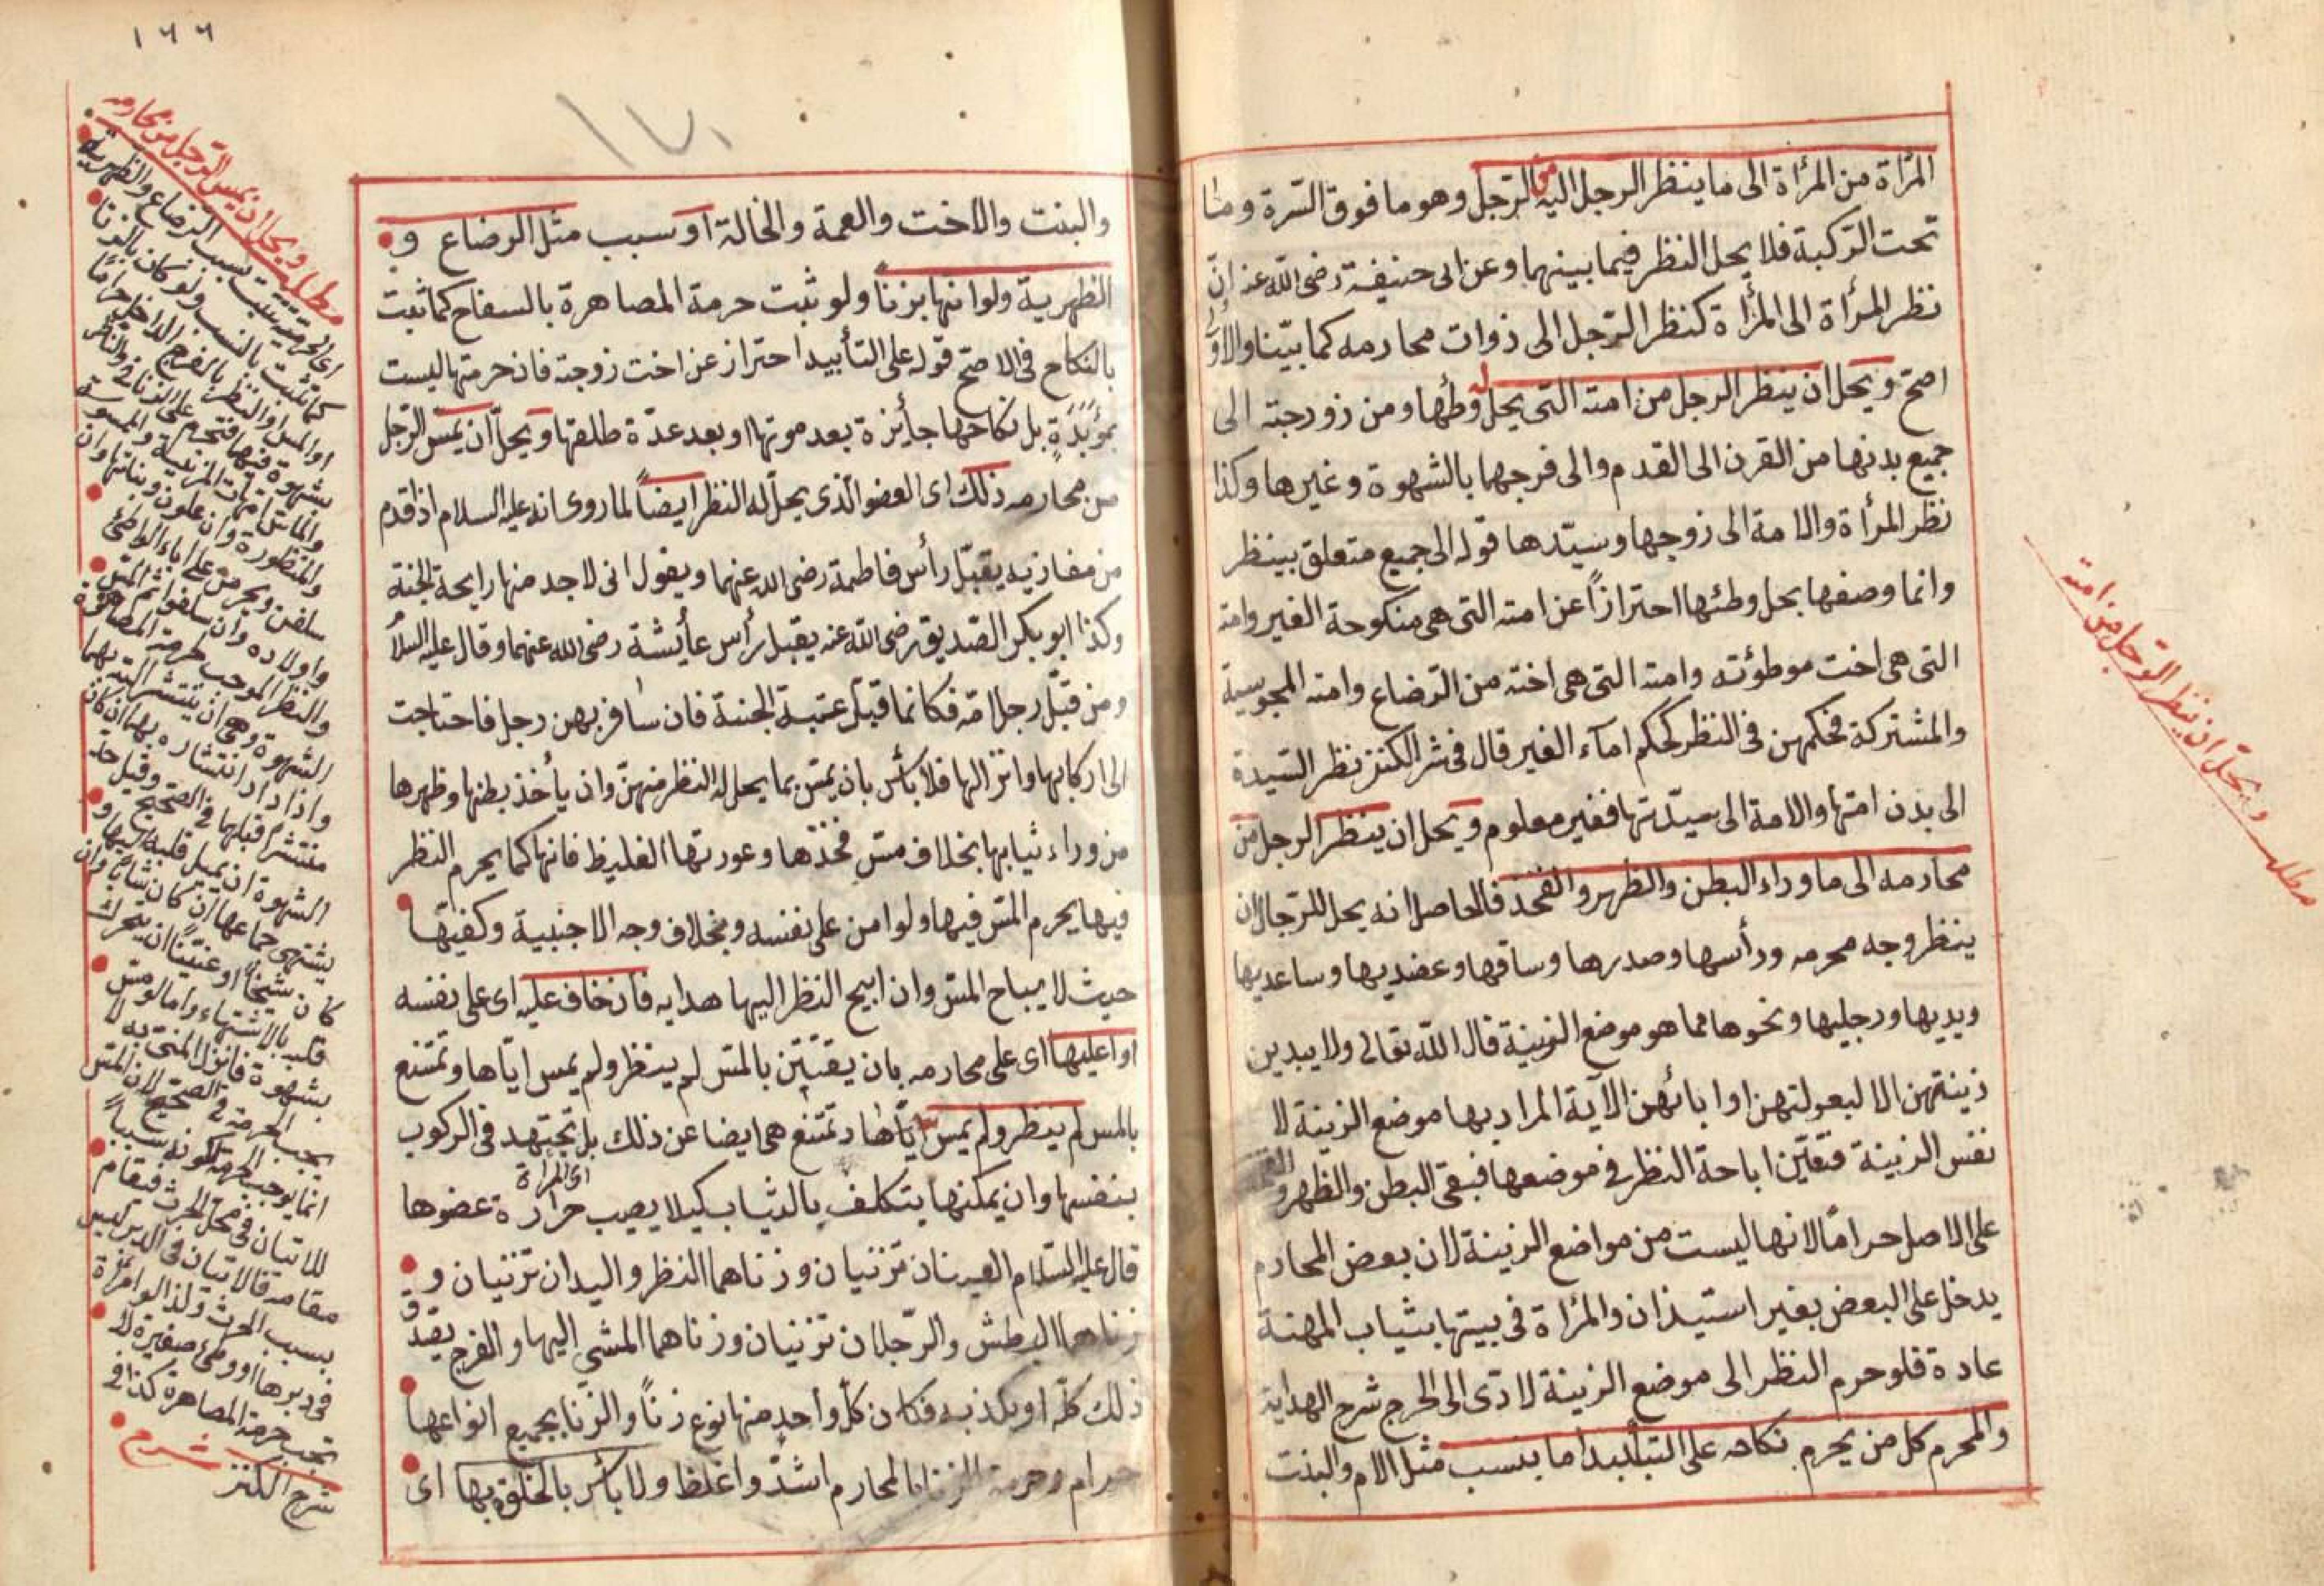 المرأة من المرأة الى ما ينظر الرجل اليه من الرجل وهو ما فوق السرة وما
تحت الركبة فلا يحل النظر فيما بينهما وعن ابى حنيفة رضى الله عنه ان
نظر المرأة الى المرأة كنظر الرجل الى ذوات محارمه كما بيّنا والاول
اصح ويحل ان ينظر الرجل من امته التى يحل له وطئها ومن زوجته الى
جميع بدنها من القرن الى القدم والى فرجها بالشهوة وغيرها وكذا
نظر المرأة والامة الى زوجها وسيّدها قوله الى جميع متعلق بينظر
وانما وصفها بحل وطئها احترازاً عن امته التى هى منكوحة الغير وامته
التى هى اخت موطوئته وامته التى هى اخته من الرضاع وامته المجوسية
والمشتركة فحكمهن فى النظر كحكم اماء الغير قال فى شر الكنز نظر السيدة
الى بدن امتها والامة الى سيّدتها فغير معلوم ويحل ان ينظر الرجل من
محارمه الى ما وراء البطن والظهر والفخذ فالحاصل انه يحل للرجال ان
ينظر وجه محرمه ورأسها وصدرها وساقها وعضديها وساعديها
ويديها ورجليها ونحوها مما هو موضع الزينة قال الله تعالى ولا يبدين
زينتهن الا لبعولتهن او ابائهن الآية المراد بها موضع الزينة لا
نفس الزينة فتعيّن اباحة النظر فى موضعها فبقى البطن والظهر و
على الاصل حراماً لانها ليست من مواضع الزينة لان بعض المحارم
يدخل على البعض بغير استيذان والمرأة فى بيتها بثياب المهنة
عادة فلو حرم النظر الى موضع الزينة لادّى الى الحرج شرح الهداية
والمحرم كل من يحرم نكاحه على التأبيد اما بنسب مثل الام والبنت
مطلب ويحل ان ينظر الرجل من امته
١٦٦
١٧١
والبنت والاخت والعمة والخالة او سبب مثل الرضاع و
الظهرية ولو انها بزنا ولو ثبت حرمة المصاهرة بالسفاح كما ثبت
بالنكاح فى الاصح قوله على التأبيد احتراز عن اخت زوجته فان حرمتها ليست
بمؤبدة بل نكاحها جائزة بعد موتها او بعد عدّة طلقتها ويحل ان يمس الرجل
من محارمه ذلك اى العضو الذى يحل له النظر ايضاً لما روى انه عليه السلام اذا قدم
من مغازيه يقبّل رأس فاطمة رضى الله عنهما ويقول انى لاجد منها رايحة الجنة
وكذا ابو بكر الصديق رضى الله عنه يقبل رأس عائشة رضى الله عنهما وقال عليه السلا
ومن قبّل رجل امّه فكانما قبّل عتبة الجنة فان سافر بهن رجل فاحتاجت
الى اركابها وانزالها فلا بأس بان يمس بما يحل له النظر منهنّ وان يأخذ بطنها وظهرها
من وراء ثيابها بخلاف مس فخذها وعورتها الغليظ فانها كما يحرم النظر
فيها يحرم المس فيها ولو امن على نفسه وبخلاف وجه الاجنبية وكفيها
حيث لا يباح المس وان ابيح النظر اليها هدايه فان خاف عليه اى على نفسه
او اعليها اى على محارمه بان يفتتن بالمس لم ينظر ولم يمس ايّاها وتمتنع
بالمس لم ينظر ولم يمس ايّاها وتمتنع هى ايضا عن ذلك بل تجتهد فى الركوب
بنفسها وان يمكنها يتكلف بالثياب كيلا يصيب حرارة عضوها
اى المرأة
قال عليه السّلام العينان تزنيان وزناهما النظر واليدان تزنيان و
زناهما البطش والرّجلان تزنيان وزناهما المشى اليها والفرج يصدق
ذلك كلّه او يكذب فكان كلّ واحد منها نوع زناً والزّنا بجميع انواعها
حرام وحرمة الزنا بالمحارم اشدّ واغلظ ولا بأس بالخلوة بها اى
مطلب ويحل ان يمس الرجل من محارمه
اى الحرمة تثبت بسبب الرضاع والظهرية
كما تثبت بالنسب ولو كان بالزنا
او المس او النظر بالفرج الداخل حراما
بشهوة فيها فتحرم على الزانى والناظر
والماس امهات المزنية والممسوسة
والمنظورة وان علون وبناتها وان
سلفن ويحرمن على اباء الواطئ
واولاده وان سلفوا ثم المس
والنظر الموجب لحرمة المصاهرة
الشهوة وهى ان ينتشر الته بهما
واذا داد انتشاره بها ان كان
منتشرا قبلها فى الصحيح وقيل حد
الشهوة ان يميل قلبه اليها و
يشتهى جماعها ان كان شابا وان
كان شيخاً او عنيناً ان يتحرك
قلبه بالاشتهاء واما لو مس
بشهوة فانزل المنى به لا
يجب الحرمة فى الصحيح لان المس
انما يوجب الحرمة لكونه سبباً
للاتيان فى محل الحرث فيقام
مقامه فالاتيان فى الدبر ليس
بسبب الحرث ولذا لو امرأة
فى دبرها او وطئ صغيرة لا
تجب حرمة المصاهرة كذا فى
شرح الكنز